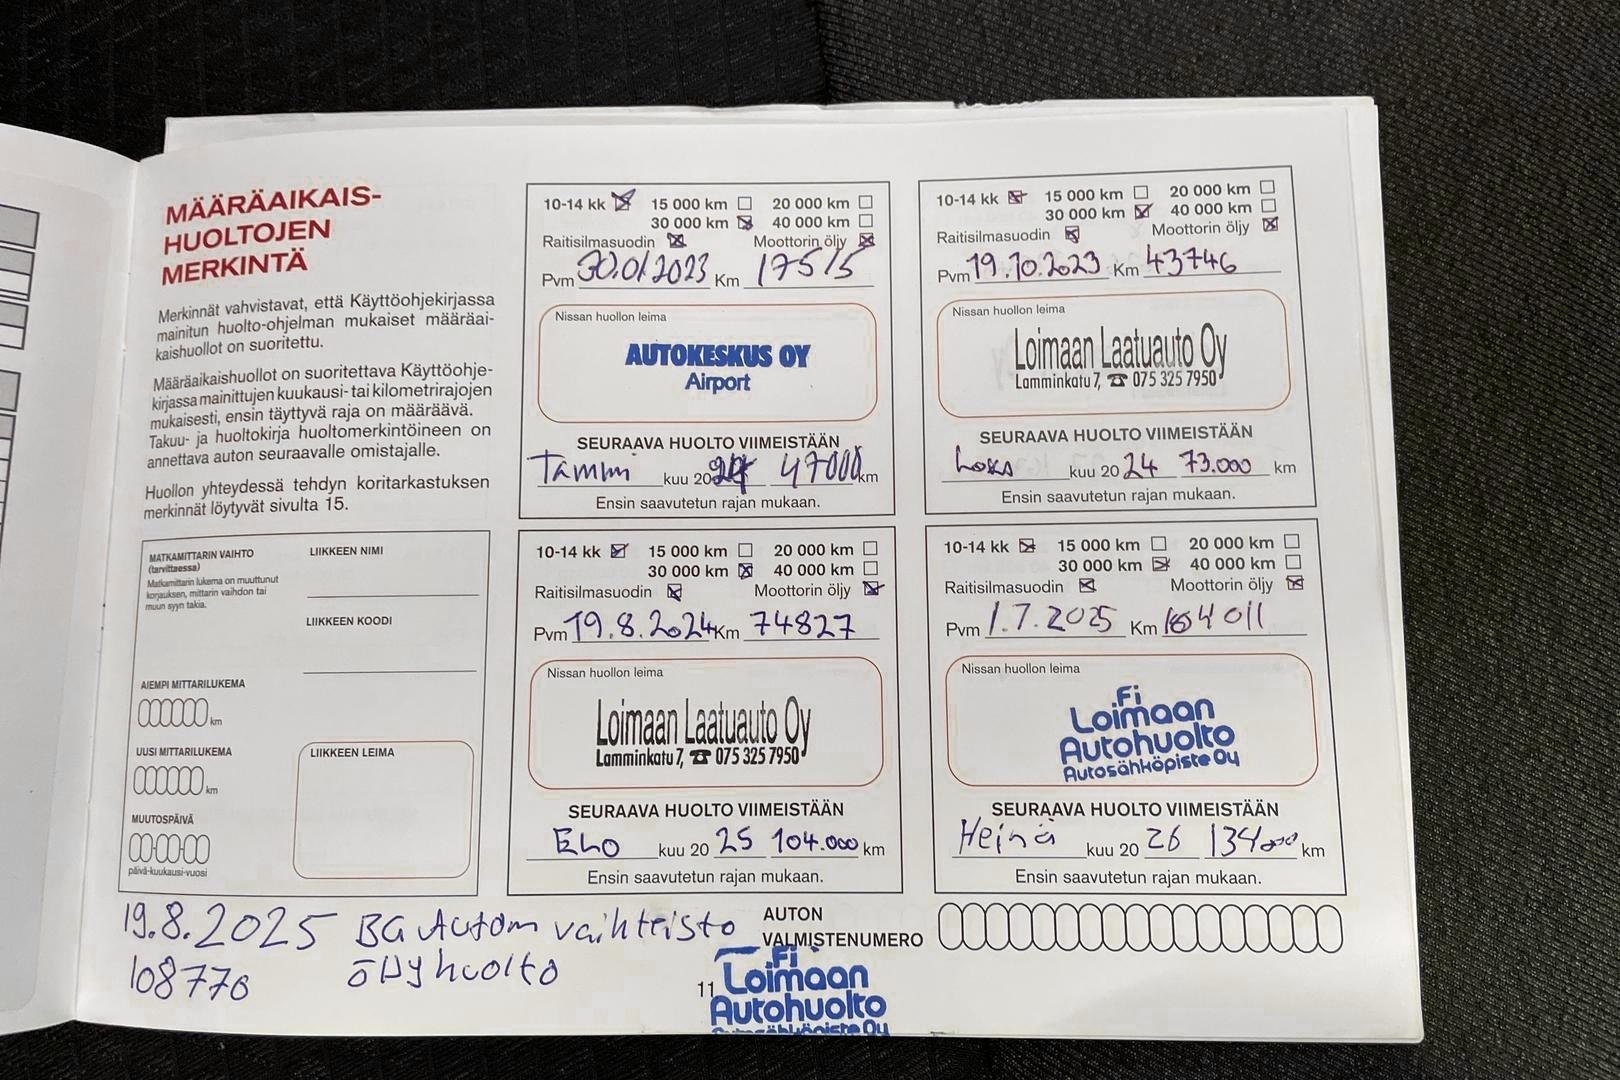 MÄÄRÄAIKAIS-
HUOLTOJEN
MERKINTÄ
Merkinnät vahvistavat, että Käyttöohjekirjassa
mainitun huolto-ohjelman mukaiset määräai-
kaishuollot on suoritettu.
Määräaikaishuollot on suoritettava Käyttöohje-
kirjassa mainittujen kuukausi- tai kilometrirajojen
mukaisesti, ensin täyttyvä raja on määräävä.
Takuu- ja huoltokirja huoltomerkintöineen on
annettava auton seuraavalle omistajalle.
Huollon yhteydessä tehdyn koritarkastuksen
merkinnät löytyvät sivulta 15.
MATKAMITTARIN VAIHTO
(tarvittaessa)
Matkamittarin lukema on muuttunut
korjauksen, mittarin vaihdon tai
muun syyn takia.
LIIKKEEN NIMI
LIIKKEEN KOODI
AIEMPI MITTARILUKEMA
km
UUSI MITTARILUKEMA
km
MUUTOSPÄIVÄ
päivä-kuukausi-vuosi
LIIKKEEN LEIMA
10-14 kk 15 000 km 20 000 km
30 000 km 40 000 km
Raitisilmasuodin Moottorin öljy
Pvm 30.01.2023 Km 17515
Nissan huollon leima
AUTOKESKUS OY
Airport
SEURAAVA HUOLTO VIIMEISTÄÄN
Tammi kuu 2024 47000 km
Ensin saavutetun rajan mukaan.
10-14 kk 15 000 km 20 000 km
30 000 km 40 000 km
Raitisilmasuodin Moottorin öljy
Pvm 19.10.2023 Km 43746
Nissan huollon leima
Loimaan Laatuauto Oy
Lamminkatu 7, ☎ 075 325 7950
SEURAAVA HUOLTO VIIMEISTÄÄN
Loka kuu 2024 73.000 km
Ensin saavutetun rajan mukaan.
10-14 kk 15 000 km 20 000 km
30 000 km 40 000 km
Raitisilmasuodin Moottorin öljy
Pvm 19.8.2024 Km 74827
Nissan huollon leima
Loimaan Laatuauto Oy
Lamminkatu 7, ☎ 075 325 7950
SEURAAVA HUOLTO VIIMEISTÄÄN
Elo kuu 2025 104.000 km
Ensin saavutetun rajan mukaan.
10-14 kk 15 000 km 20 000 km
30 000 km 40 000 km
Raitisilmasuodin Moottorin öljy
Pvm 1.7.2025 Km
Nissan huollon leima
Fi
Loimaan
Autohuolto
Autosähköpiste Oy
SEURAAVA HUOLTO VIIMEISTÄÄN
Heinä kuu 2026 134000 km
Ensin saavutetun rajan mukaan.
19.8.2025 BG Autom vaihteisto
108770 öljyhuolto
AUTON
VALMISTENUMERO
11
Fi
Loimaan
Autohuolto
Autosähköpiste Oy